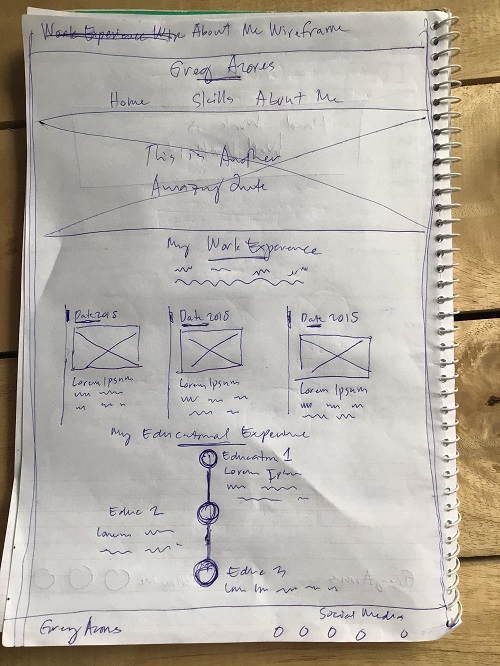 Work Experience Wire About Me Wireframe
Greg Azores
Home Skills About Me
This is Another
Amazing Quote
My Work Experience
Date 2015 Date 2015 Date 2015
Lorem Ipsum Lorem Ipsum Lorem Ipsum
My Educational Experience
Education 1
Lorem Ipsum
Educ 2
Lorem
Educ 3
Social Media
Greg Azores